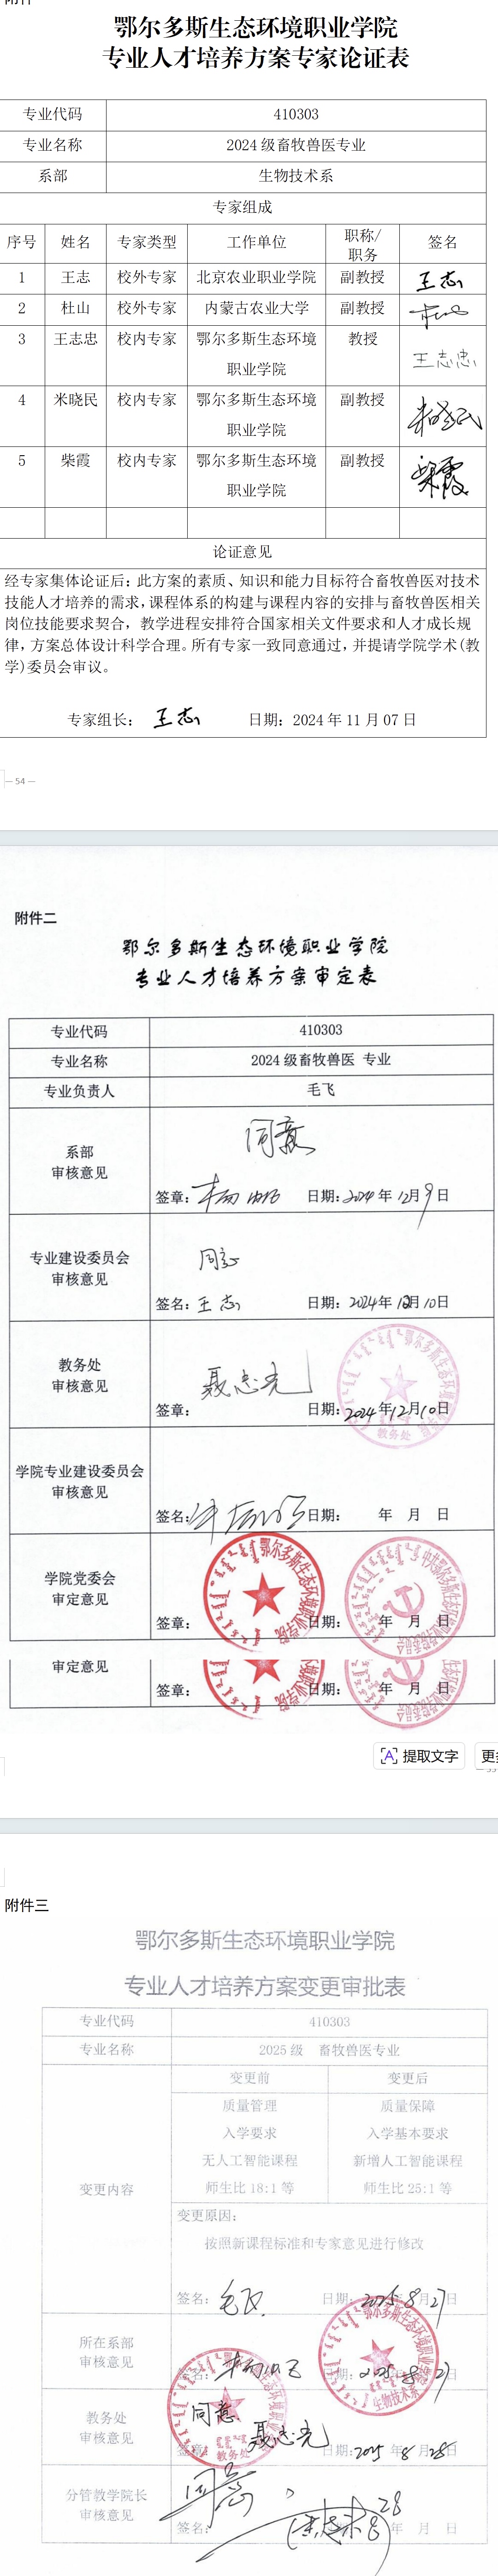 鄂尔多斯生态环境职业学院
专业人才培养方案专家论证表
专业代码 410303
专业名称 2024级畜牧兽医专业
系部 生物技术系
专家组成
序号 姓名 专家类型 工作单位 职称/职务 签名
1 王志 校外专家 北京农业职业学院 副教授 王志
2 杜山 校外专家 内蒙古农业大学 副教授
3 王志忠 校内专家 鄂尔多斯生态环境职业学院 教授 王志忠
4 米晓民 校内专家 鄂尔多斯生态环境职业学院 副教授 米晓民
5 柴霞 校内专家 鄂尔多斯生态环境职业学院 副教授 柴霞
论证意见
经专家集体论证后：此方案的素质、知识和能力目标符合畜牧兽医对技术
技能人才培养的需求，课程体系的构建与课程内容的安排与畜牧兽医相关
岗位技能要求契合，教学进程安排符合国家相关文件要求和人才成长规
律，方案总体设计科学合理。所有专家一致同意通过，并提请学院学术(教
学)委员会审议。
专家组长： 王志 日期：2024年11月07日
— 54 —
附件二
鄂尔多斯生态环境职业学院
专业人才培养方案审定表
专业代码 410303
专业名称 2024级畜牧兽医 专业
专业负责人 毛飞
系部
审核意见
同意
签章： 日期：2024年12月9日
专业建设委员会
审核意见
同意
签名：王志 日期：2024年12月10日
教务处
审核意见
聂忠光
签章： 日期：2024年12月10日
教务处
学院专业建设委员会
审核意见
签名： 日期： 年 月 日
学院党委会
审定意见
签章： 日期： 年 月 日
鄂尔多斯生态环境职业学院
审定意见
签章： 日期： 年 月 日
提取文字
附件三
鄂尔多斯生态环境职业学院
专业人才培养方案变更审批表
专业代码 410303
专业名称 2025级 畜牧兽医专业
变更内容
变更前 变更后
质量管理 质量保障
入学要求 入学基本要求
无人工智能课程 新增人工智能课程
师生比18:1等 师生比25:1等
变更原因：
按照新课程标准和专家意见进行修改
签名：毛飞 日期：2025.8.27
所在系部
审核意见
签名： 日期：2025.8.27
生物技术系
教务处
审核意见
同意
签章：聂忠光 日期：2025年8月28日
教务处
分管教学院长
审核意见
同意
签名： 年 月 日